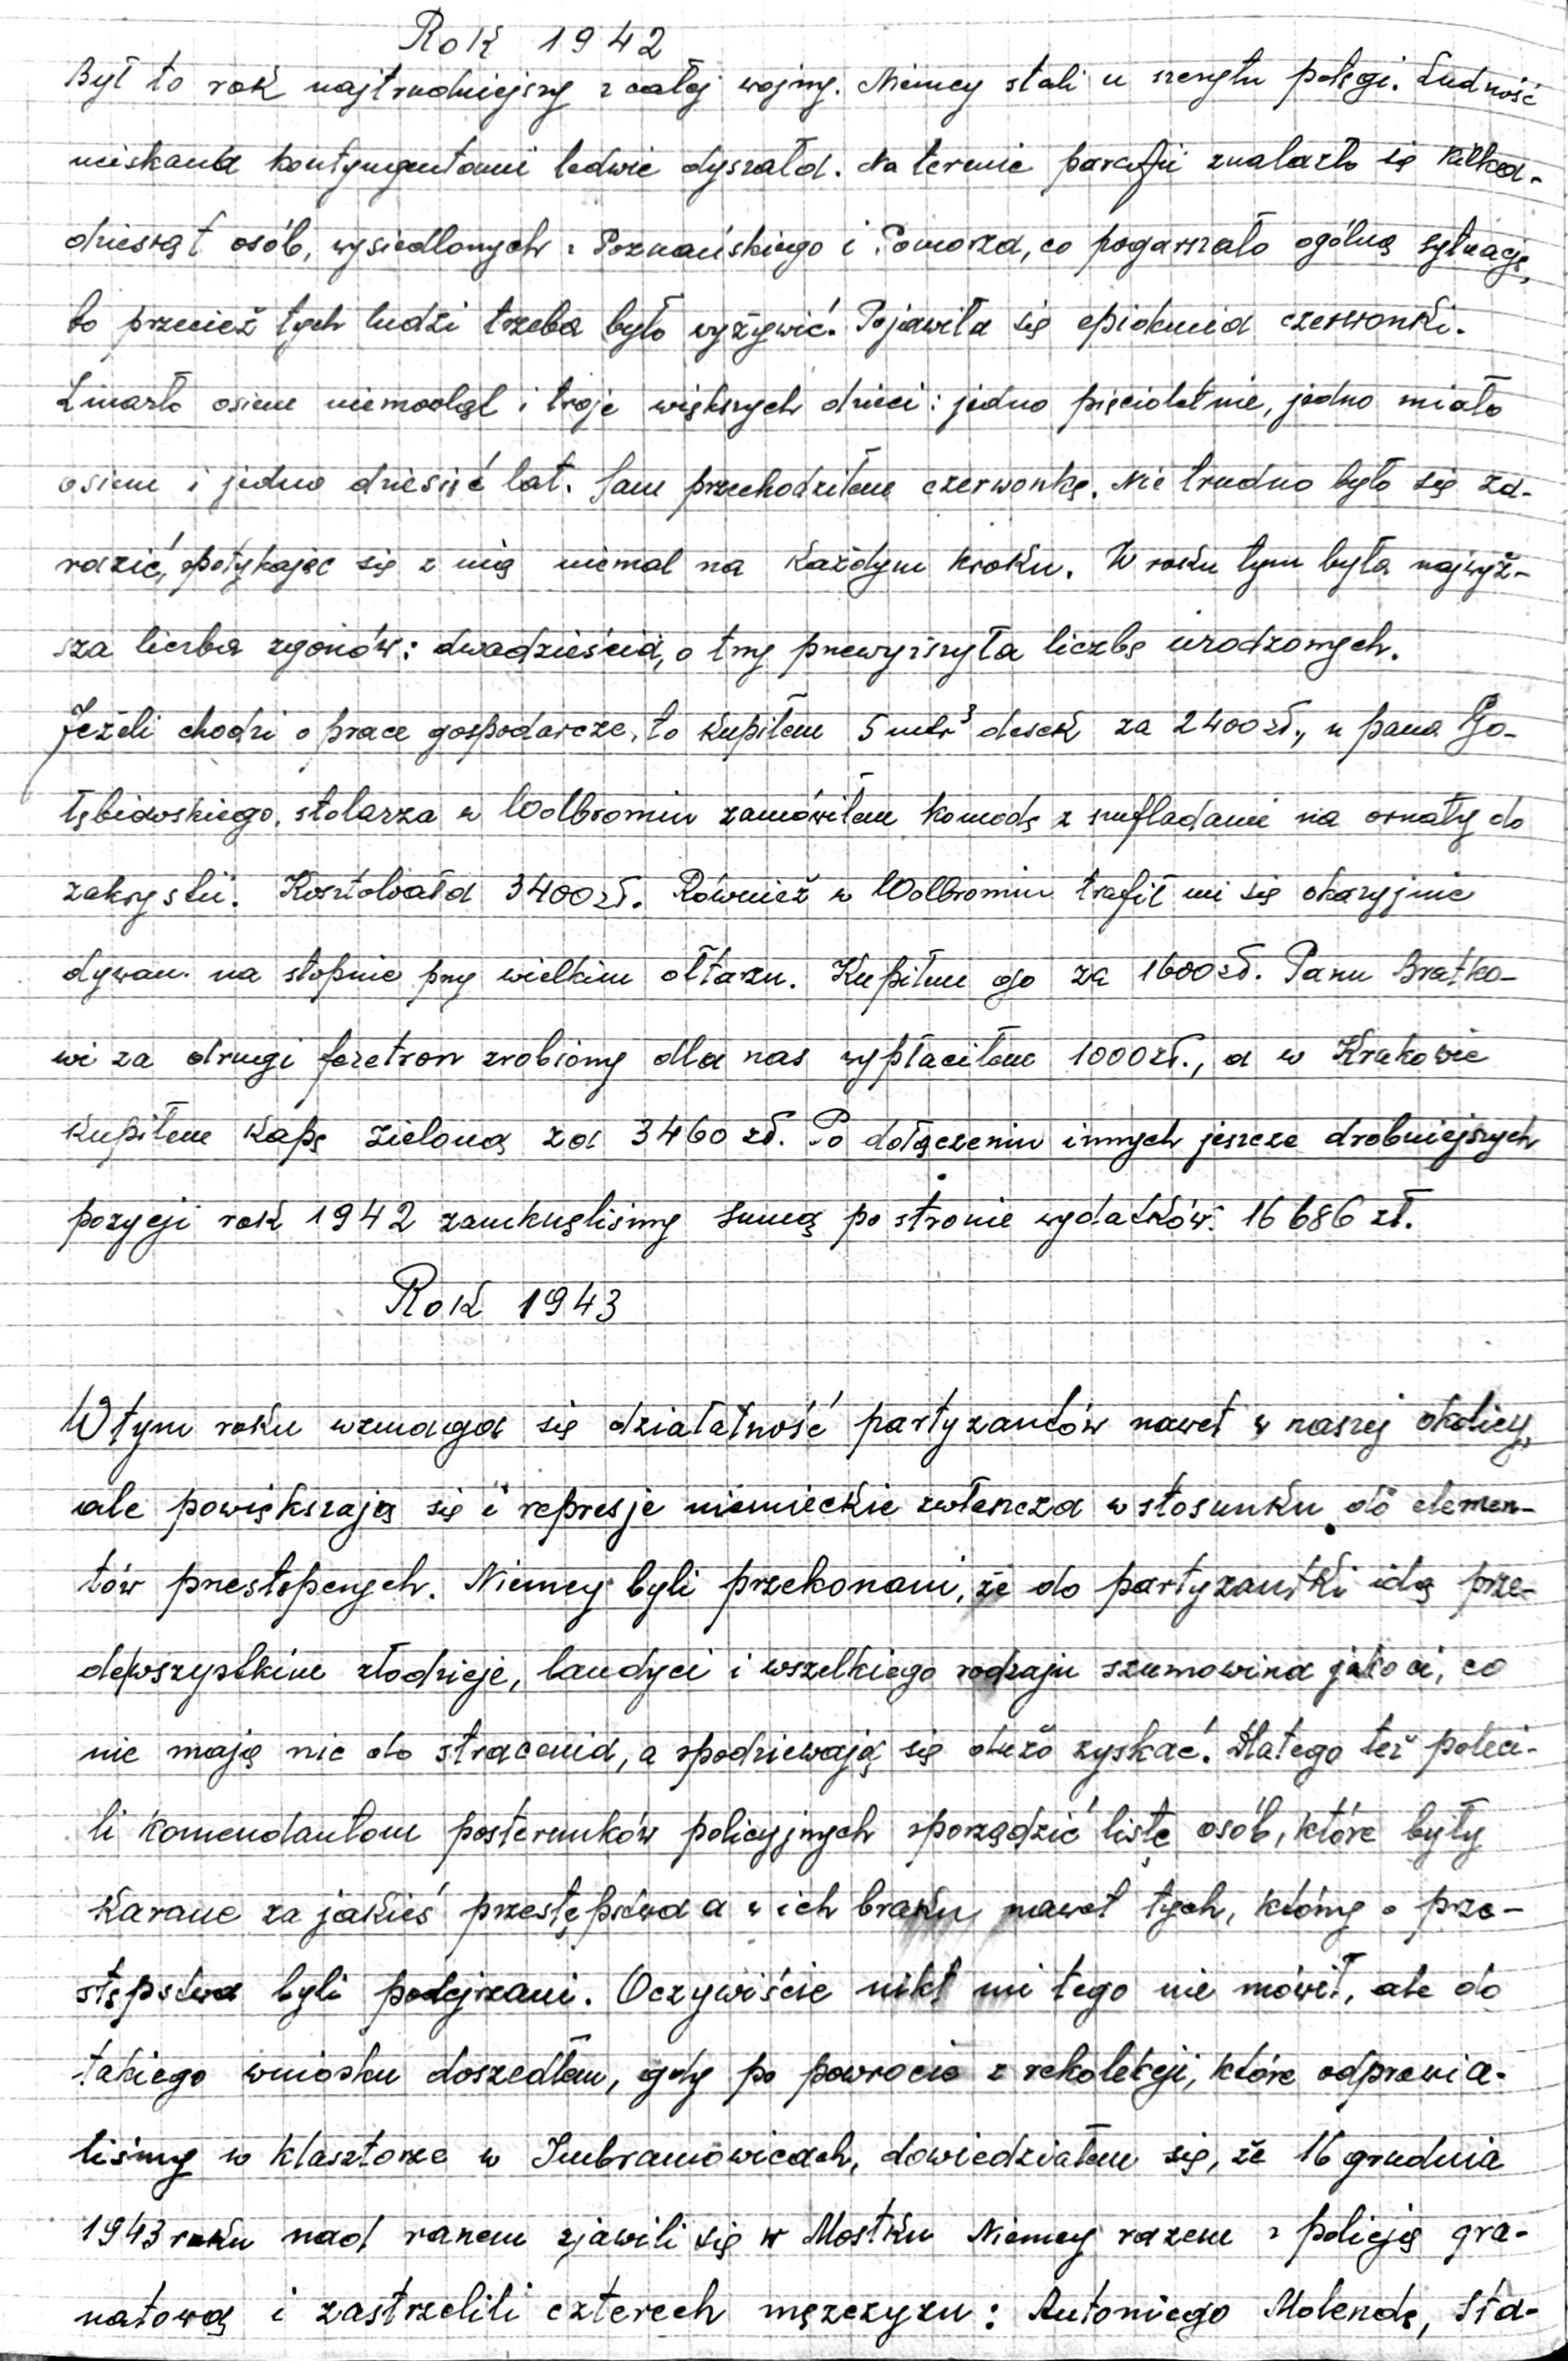 Rok 1942
Był to rok najtrudniejszy z całej wojny. Niemcy stali u szczytu potęgi. Ludność
uciskana kontyngentami ledwie dyszała. Na terenie parafii znalazło się kilka-
dziesiąt osób, wysiedlonych z Poznańskiego i Pomorza, co pogarszało ogólną sytuację,
bo przecież tych ludzi trzeba było wyżywić. Pojawiła się epidemia czerwonki.
Zmarło osiem niemowląt i troje większych dzieci: jedno pięcioletnie, jedno miało
osiem i jedno dziesięć lat. Sam przechodziłem czerwonkę. Nie trudno było się za-
razić, spotykając się z nią niemal na każdym kroku. W roku tym była najwyż-
sza liczba zgonów: dwadzieścia, o trzy przewyższyła liczbę urodzonych.
Jeżeli chodzi o prace gospodarcze, to kupiłem 5 mtr³ desek za 2400 zł., u pana Go-
łębiowskiego, stolarza w Wolbromiu zamówiłem komodę z szufladami na ornaty do
zakrystii. Kosztowała 3400 zł. Również w Wolbromiu trafił mi się okazyjnie
dywan na stopnie przy wielkim ołtarzu. Kupiłem go za 1600 zł. Panu Bratko-
wi za drugi feretron zrobiony dla nas wypłaciłem 1000 zł., a w Krakowie
kupiłem kapę zieloną za 3460 zł. Po dołączeniu innych jeszcze drobniejszych
pozycji rok 1942 zamknęliśmy sumą po stronie wydatków: 16 686 zł.
Rok 1943
W tym roku wzmaga się działatność partyzantów nawet w naszej okolicy,
ale powiększają się i represje niemieckie zwłaszcza w stosunku do elemen-
tów przestępczych. Niemcy byli przekonani, że do partyzantki idą prze-
dewszystkim złodzieje, bandyci i wszelkiego rodzaju szumowina jako ci, co
nie mają nic do stracenia, a spodziewają się dużo zyskać. Dlatego też poleci-
li komendantom posterunków policyjnych sporządzić listę osób, które były
karane za jakieś przestępstwa a w ich braku nawet tych, którzy o prze-
stępstwa byli podejrzani. Oczywiście nikt mi tego nie mówił, ale do
takiego wniosku doszedłem, gdy po powrocie z rekolekcji, które odprawia-
liśmy w klasztorze w Imbramowicach, dowiedziałem się, że 16 grudnia
1943 roku nad ranem zjawili się w Mostku Niemcy razem z policją gra-
natową i zastrzelili czterech mężczyzn: Antoniego Molendę, Sta-